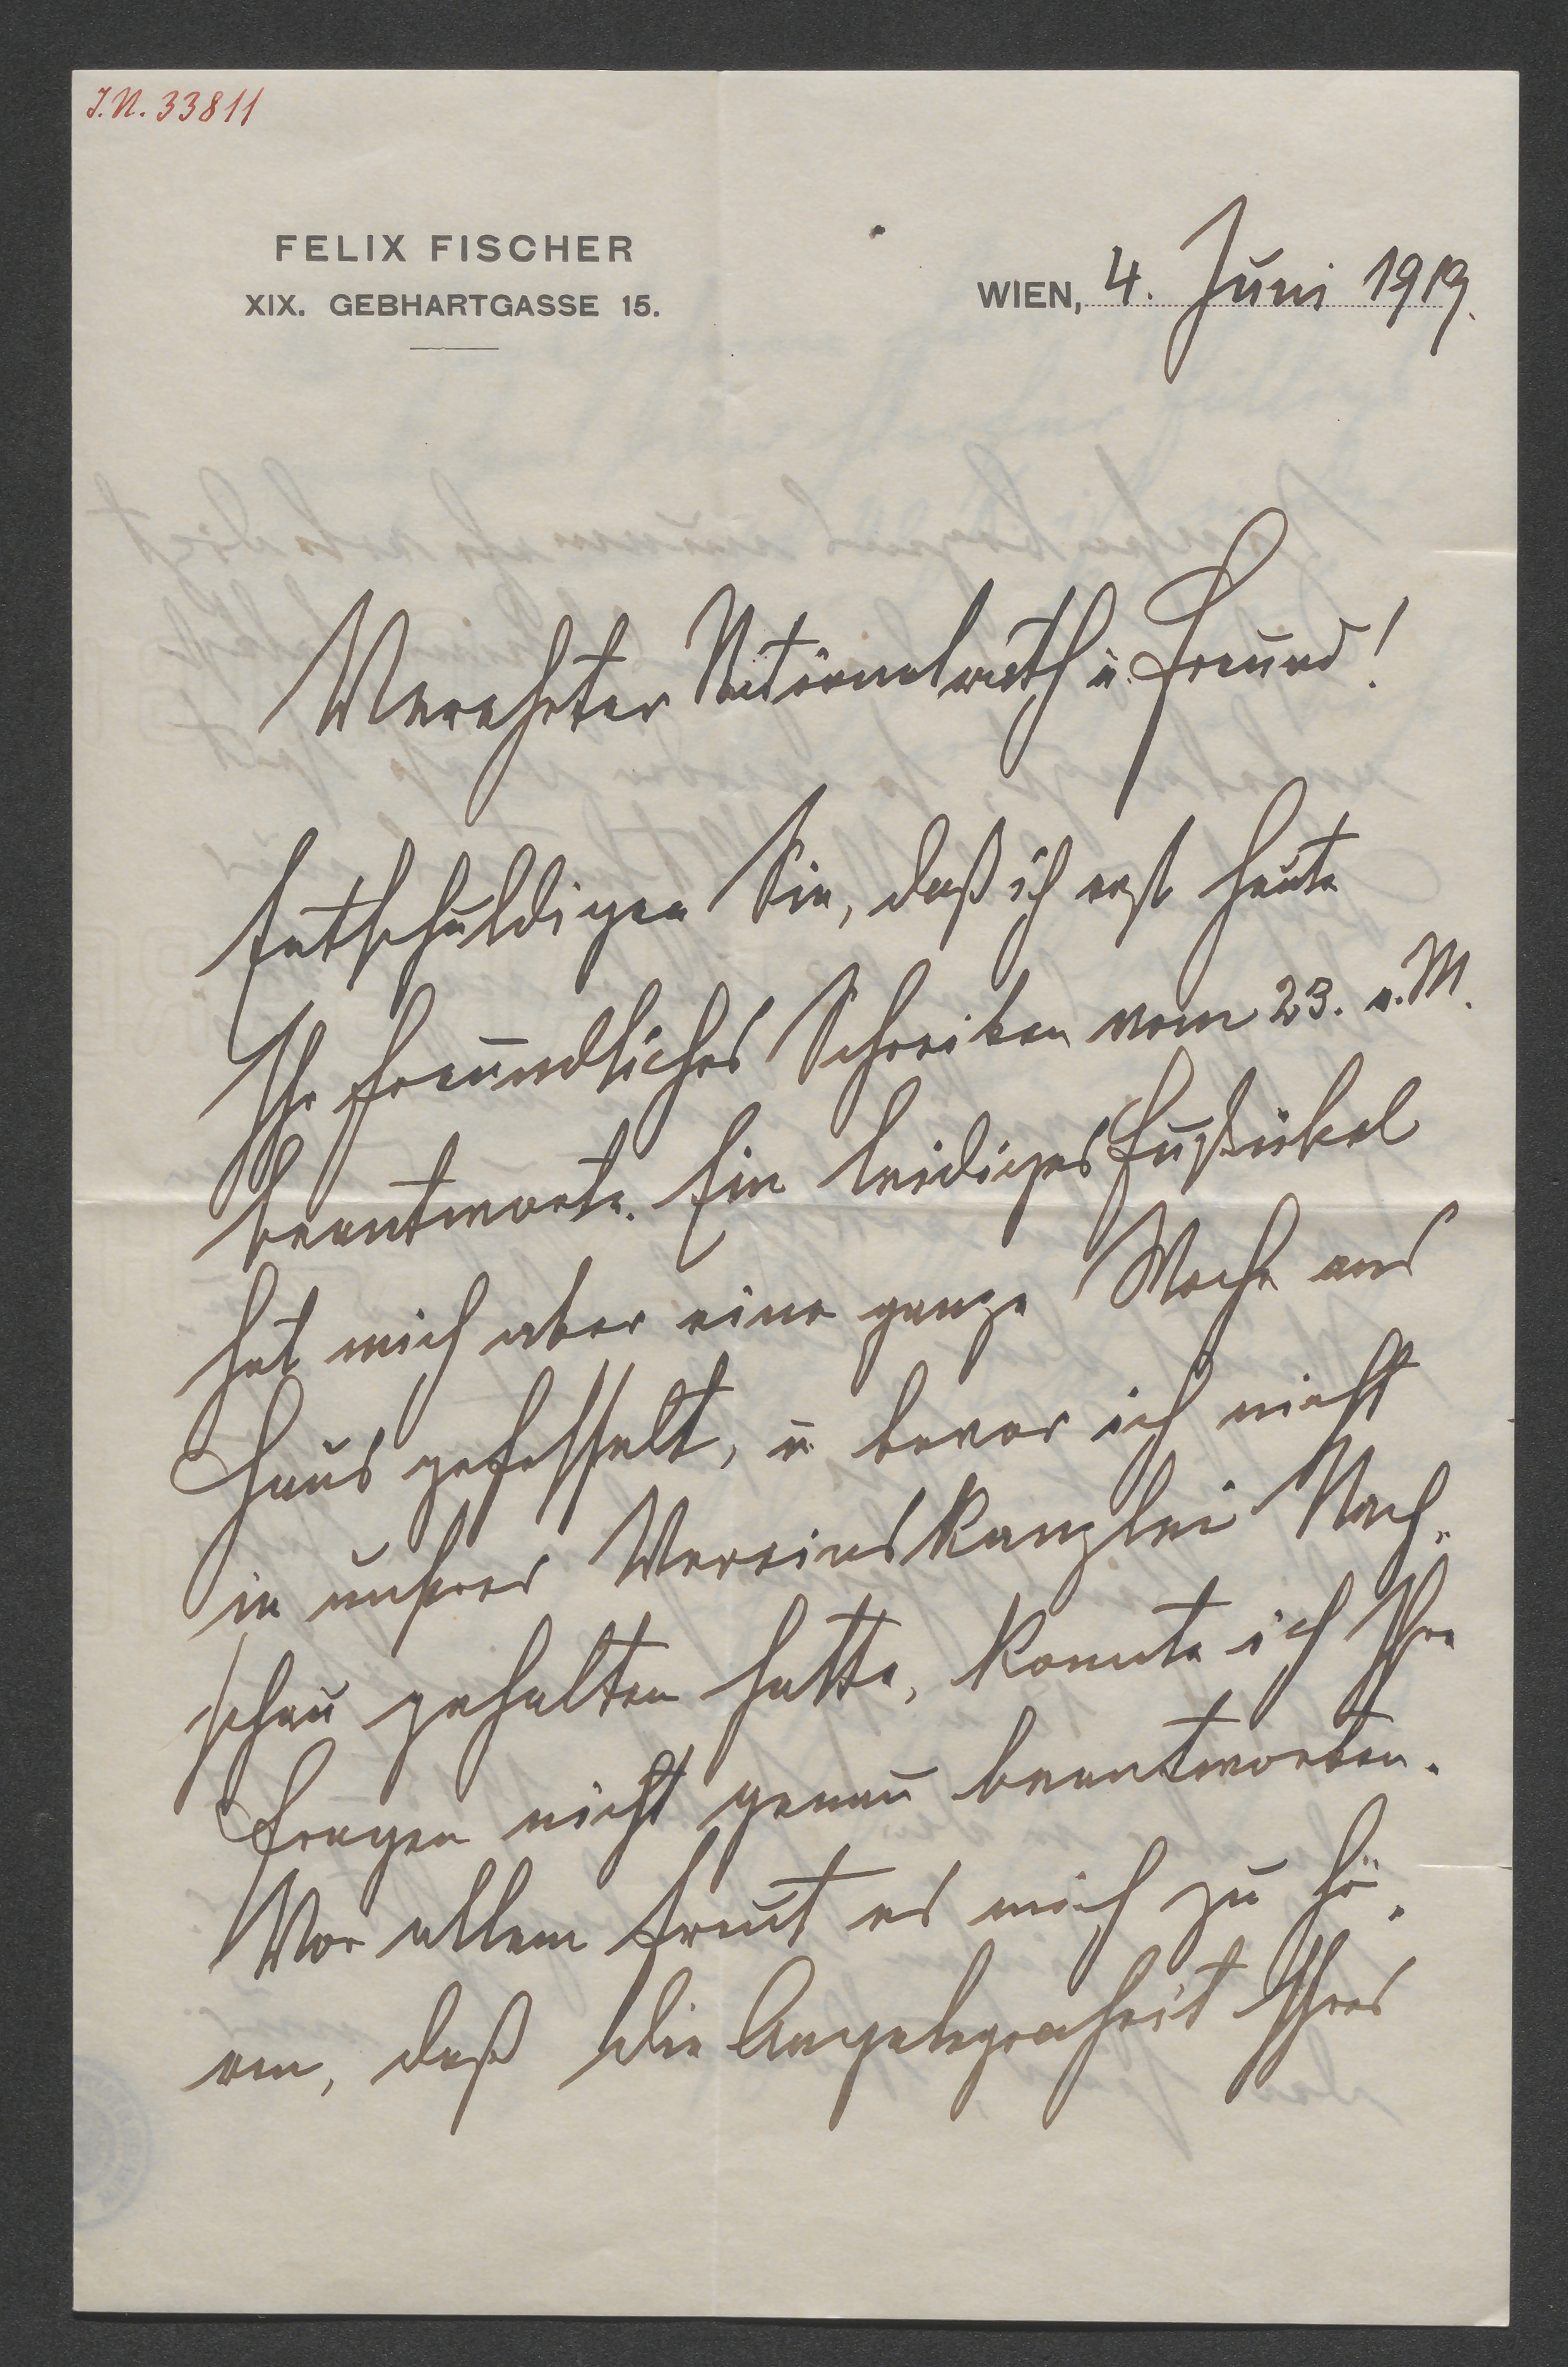 J.N. 33811
FELIX FISCHER
XIX. GEBHARTGASSE 15.
WIEN, 4. Juni 1919.
Verehrter Nationalrath u. Freund!
Entschuldigen Sie, daß ich erst heute
Ihr freundliches Schreiben vom 23. v. M.
beantworte. Ein leidiges Fußübel
hat mich aber eine ganze Woche ans
Haus gefesselt, u. bevor ich nicht
in unserer Vereinskanzlei Nach-
schau gehalten hatte, konnte ich Ihre
Fragen nicht genau beantworten.
Vor allem freut es mich zu hö-
ren, daß die Angelegenheit Ihres